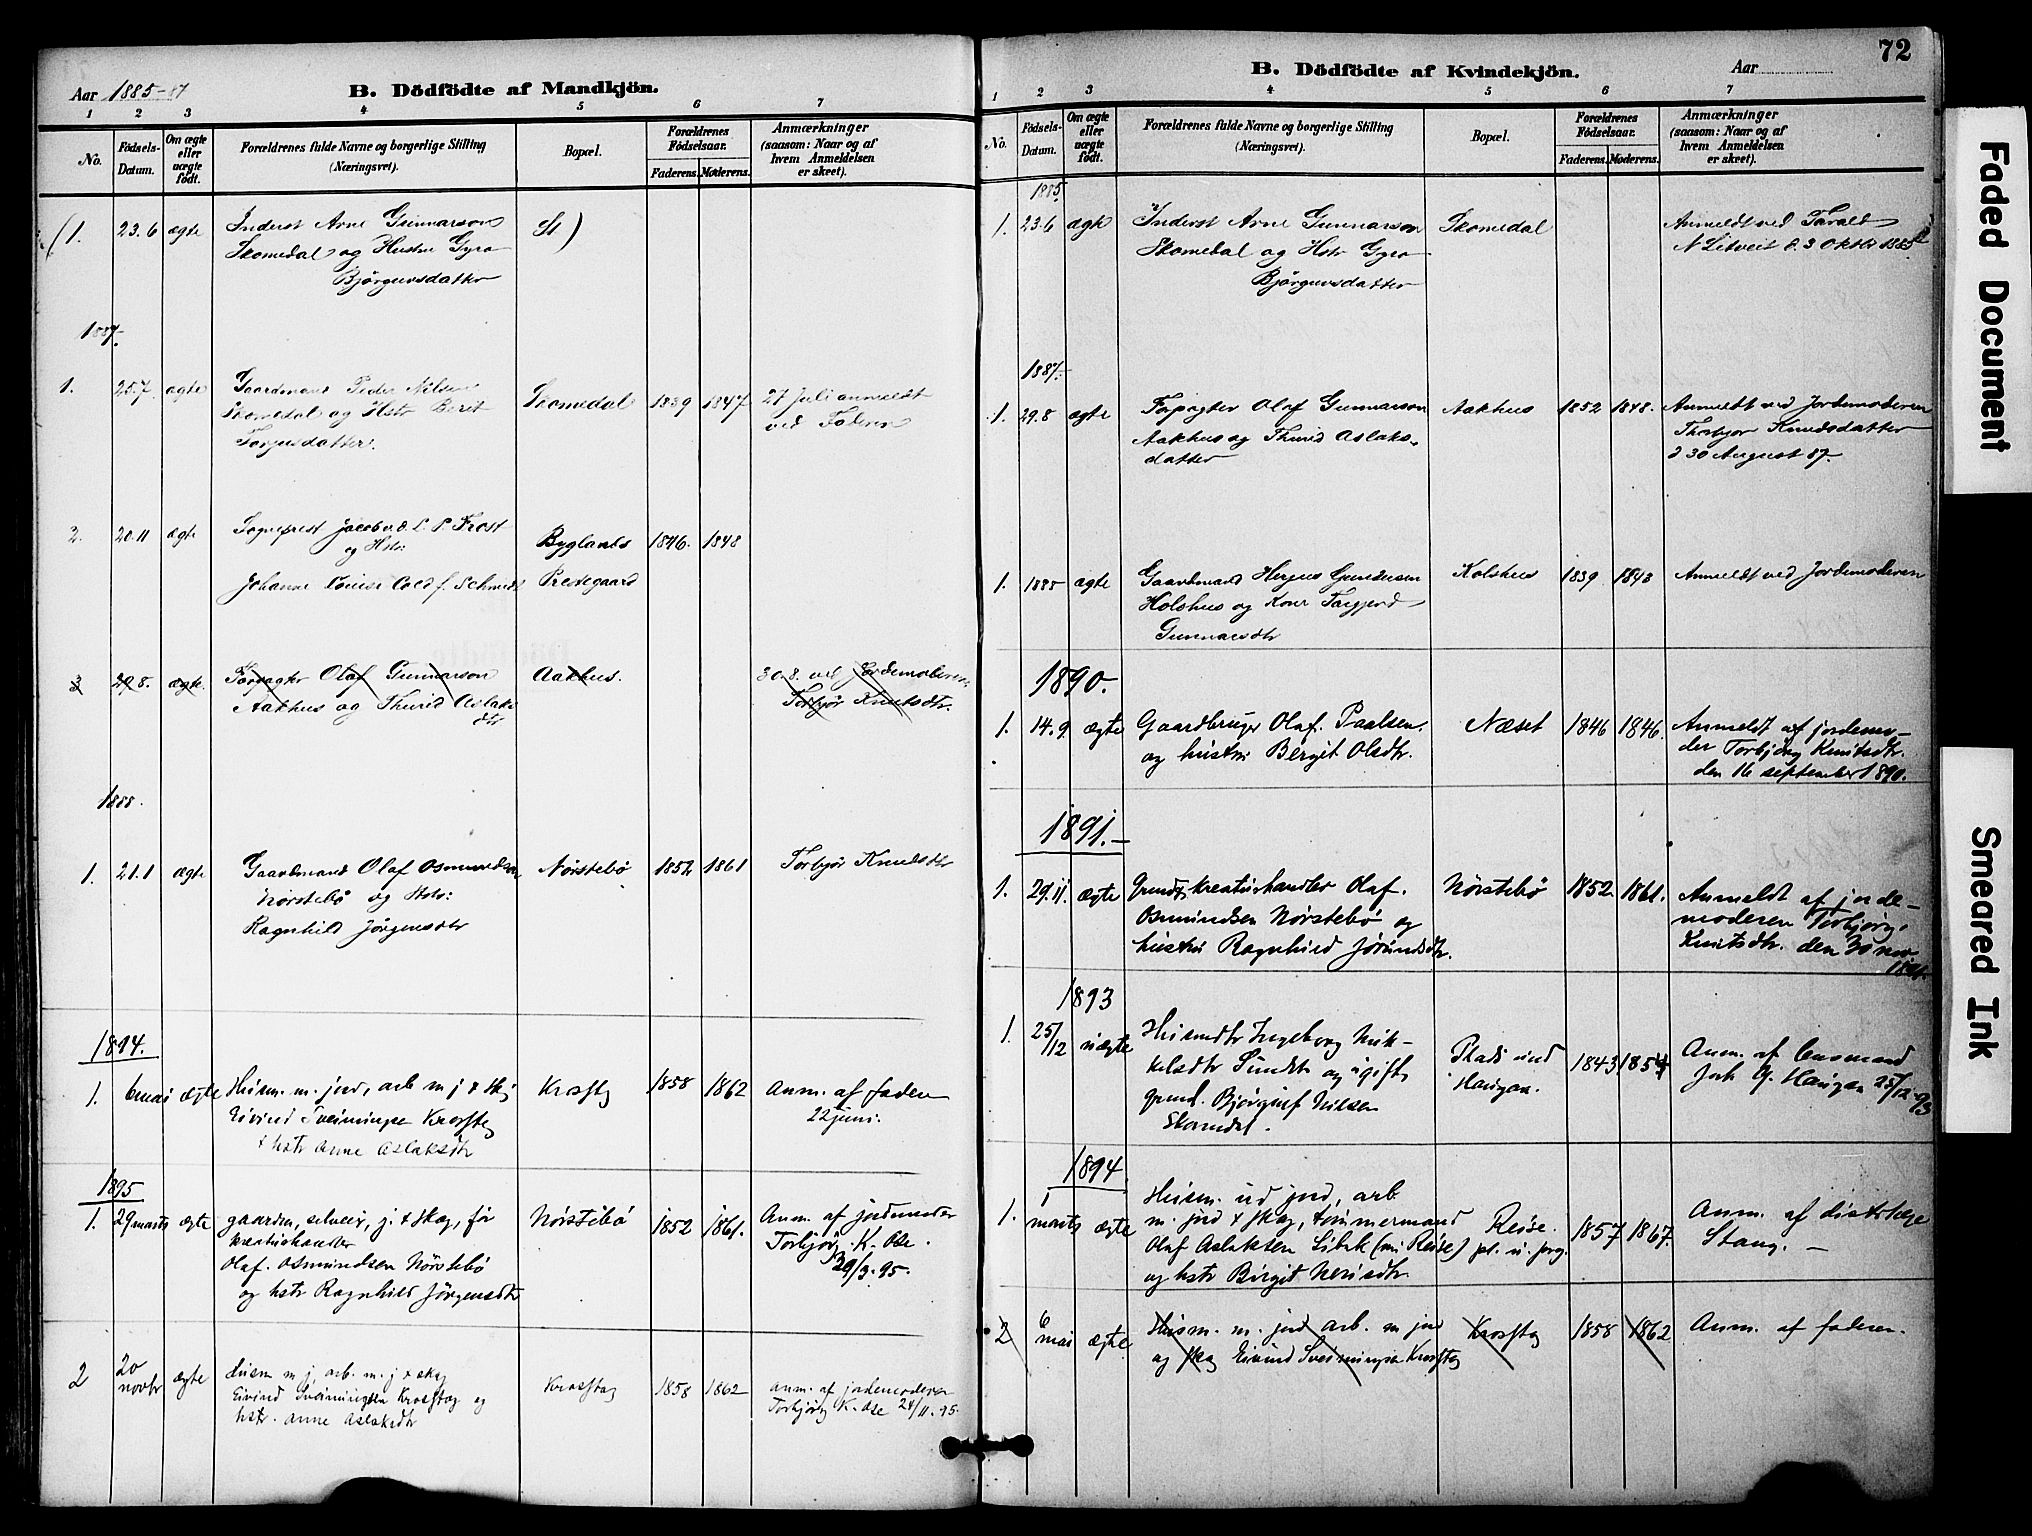 Aar 1885-87
B. Dödfödte af Mandkjön.
1 2 3 4 5 6 7
No.
Födsels-Datum.
Om ægte eller uægte födt.
Forældrenes fulde Navne og borgerlige Stilling
(Næringsvei).
Bopæl.
Forældrenes Födselsaar.
Faderens. Moderens.
Anmærkninger
(saasom: Naar og af
hvem Anmeldelsen
er skeet).
(1. 23.6 ægte Inderst Arne Gunnarson St)
Skomedal og Hustru Gyro
Bjørgursdatter
1887.
1. 25.7 ægte Gaardmand Peder Nilsen Skomedal 1839 1847 27 Juli anmeldt
Skomedal og Hstr Berit ved Faderen
Torjusdatter.
2. 20.11 ægte Sogneprest Jacob v. d. L. P. Frost
og Hstr: Byglands 1846. 1848
Johanne Louise f. Schmidt Prestegaard
3 29.8. ægte. Forpagter Olaf Gunnarson Aakhus. 30.8. ved Jordemoderen
Aakhus og Thurid Aslaks Torbjør Knutsdtr.
dtr
1888.
1. 21.1 ægte Gaardmand Olaf Osmundsen Nørstebø 1852 1861 Torbjør Knudsdtr
Nørstebø og Hstr:
Ragnhild Jørgensdtr
1894.
1. 6 mai ægte Husm. m. jord, arb m j & skog Krosstøg 1858 1862 Anm. af faderen
Eivind Sveinungsen Krosstøg 22 juni.
& hstr Anne Aslaksdtr
1895
1. 29 marts ægte gaardm, selveier, j. & skog, før Nørstebø 1852 1861. Anm. af jordmoder
kreaturhandler Torbjørg K. Ose.
Olaf Osmundsen Nørstebø 29/3.95.
og hstr Ragnhild Jørgensdtr
2 20 novbr ægte Husm m j, arb. m. j & skog Krosstøg 1858 1862 anm. af jordemoderen
Eivind Sveinungsen Krosstøg og Torbjørg K. Ose 24/11.95.
hstr. Anne Aslaksdtr
72
B. Dödfödte af Kvindekjön.
Aar
1 2 3 4 5 6 7
No.
Födsels-Datum.
Om ægte eller uægte födt.
Forældrenes fulde Navne og borgerlige Stilling
(Næringsvei).
Bopæl.
Forældrenes Födselsaar.
Faderens. Moderens.
Anmærkninger
(saasom: Naar og af
hvem Anmeldelsen
er skeet).
1885
1. 23.6 ægte Inderst Arne Gunnarson Skomedal Anmeldt ved Tarald
Skomedal og Hstr Gyro N Litveit d. 3 Oktbr 1885
Bjørgursdatter
1887.
1. 29.8 ægte Forpagter Olaf Gunnarson Aakhus 1852 1848. Anmeldt ved Jordemoderen
Aakhus og Thurid Aslaks- Thorbjør Knudsdatter
datter d 30 August 87.
1. 1885 ægte Gaardmand Herjus Gundersen Kolshus 1839 1843 Anmeldt ved Jordemoderen
Holshus og Kone Torgjerd
Gunnarsdtr
1890.
1. 14.9 ægte Gaardbruger Olaf Paalsen. Næset 1846 1846. Anmeldt af jordemo-
og hustru Bergit Olsdtr. der Torbjörg Knutsdtr.
den 16 september 1890.
1891.-
1. 29.11. ægte Grundr. kreaturhandler Olaf Nörstebö 1852 1861. Anmeldt af jorde-
Osmundsen Nörstebö og moderen Torbjörg
hustru Ragnhild Jörundsdtr. Knutsdtr. den 30 nov.
1891.
1893
1. 25/12 uægte Husmdtr Ingeborg Nik- Plads und 1843 1854 Anm. af
kelsdtr Sundt og ugift Haugen. Haugen 25/12-93
grund. Bjørgulf Nilsen
Skomedal.
1894
1. 1 marts ægte Husm. ud jord, arb
m. jord & skog, tømmermand Reise. 1857 1867. Anm. af distrlæge
Olaf Aslaksen Libæk (nu Reise) pl. u. jorg. Stang. -
og hstr Birgit Nerisdtr.
2 6 mai ægte. Husm. m. jord arb. m jord Krosstøg 1858 1862 Anm. af faderen.
og skog Eivind Sveinungsen Krosstøg
Faded Document
Smeared Ink